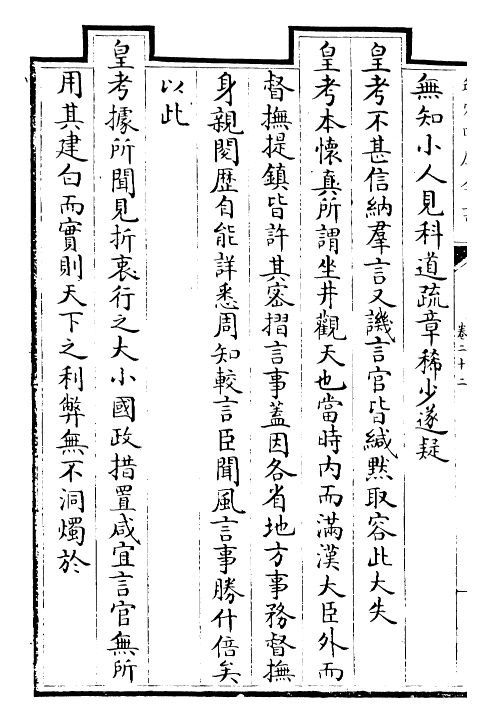 卷二十二
無知小人見科道疏章稀少遂疑
皇考不甚信納羣言又譏言官皆緘黙取容此大失
皇考本懷真所謂坐井觀天也當時内而滿漢大臣外而
督撫提鎮皆許其宻摺言事蓋因各省地方事務督撫
身親閱歴自能詳悉周知較言臣聞風言事勝什倍矣
以此
皇考據所聞見折衷行之大小國政措置咸宜言官無所
用其建白而實則天下之利弊無不洞燭於